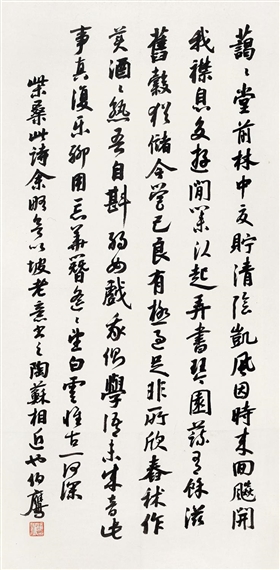 藹〻堂前林中夏貯清陰凱風因時來回飈開
我襟息交遊閒業臥起弄書琴園蔬有餘滋
舊穀猶儲今營己良有極過足非所欽舂秫作
美酒〻熟吾自斟弱子戲我側學語未成音此
事真復樂聊用忘華簪遙〻望白雲懷古一何深
柴桑此詩余以坡老意書之陶蘇相近也伯鷹